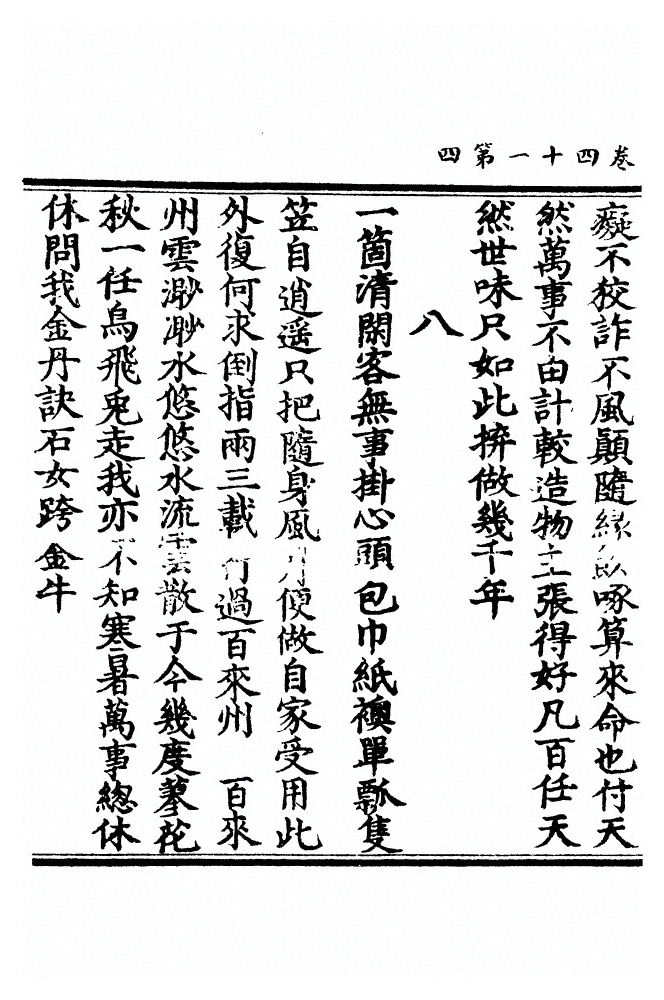 卷四十一第四
癡不狡詐不風顛隨緣飲啄算來命也付天
然萬事不由計較造物主張得好凡百任天
然世味只如此拚做幾千年
八
一箇清閑客無事掛心頭包巾紙襖單瓢隻
笠自逍遥只把隨身風月便做自家受用此
外復何求倒指兩三載 過百來州 百來
州雲渺渺水悠悠水流雲散于今幾度蓼花
秋一任烏飛兎走我亦不知寒暑萬事總休
休問我金丹訣石女跨金牛